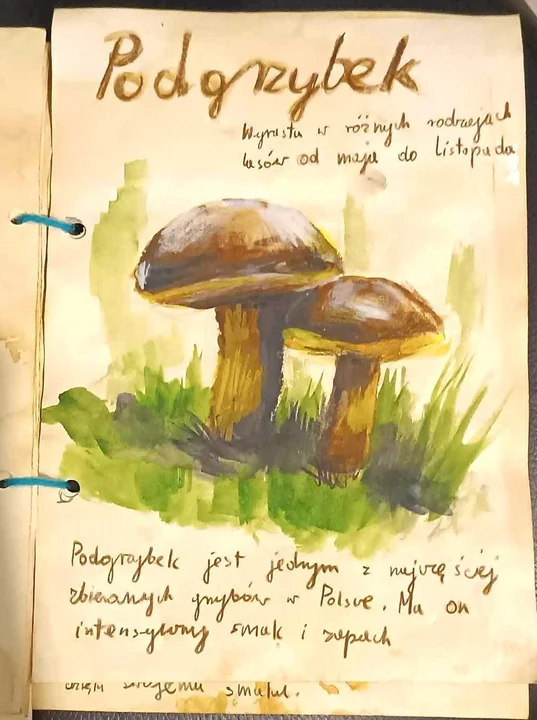 Podgrzybek
Wyrasta w różnych rodzajach
lasów od maja do Listopada
Podgrzybek jest jednym z najczęściej
zbieranych grzybów w Polsce. Ma on
intensywny smak i zapach
swojemu smaku.